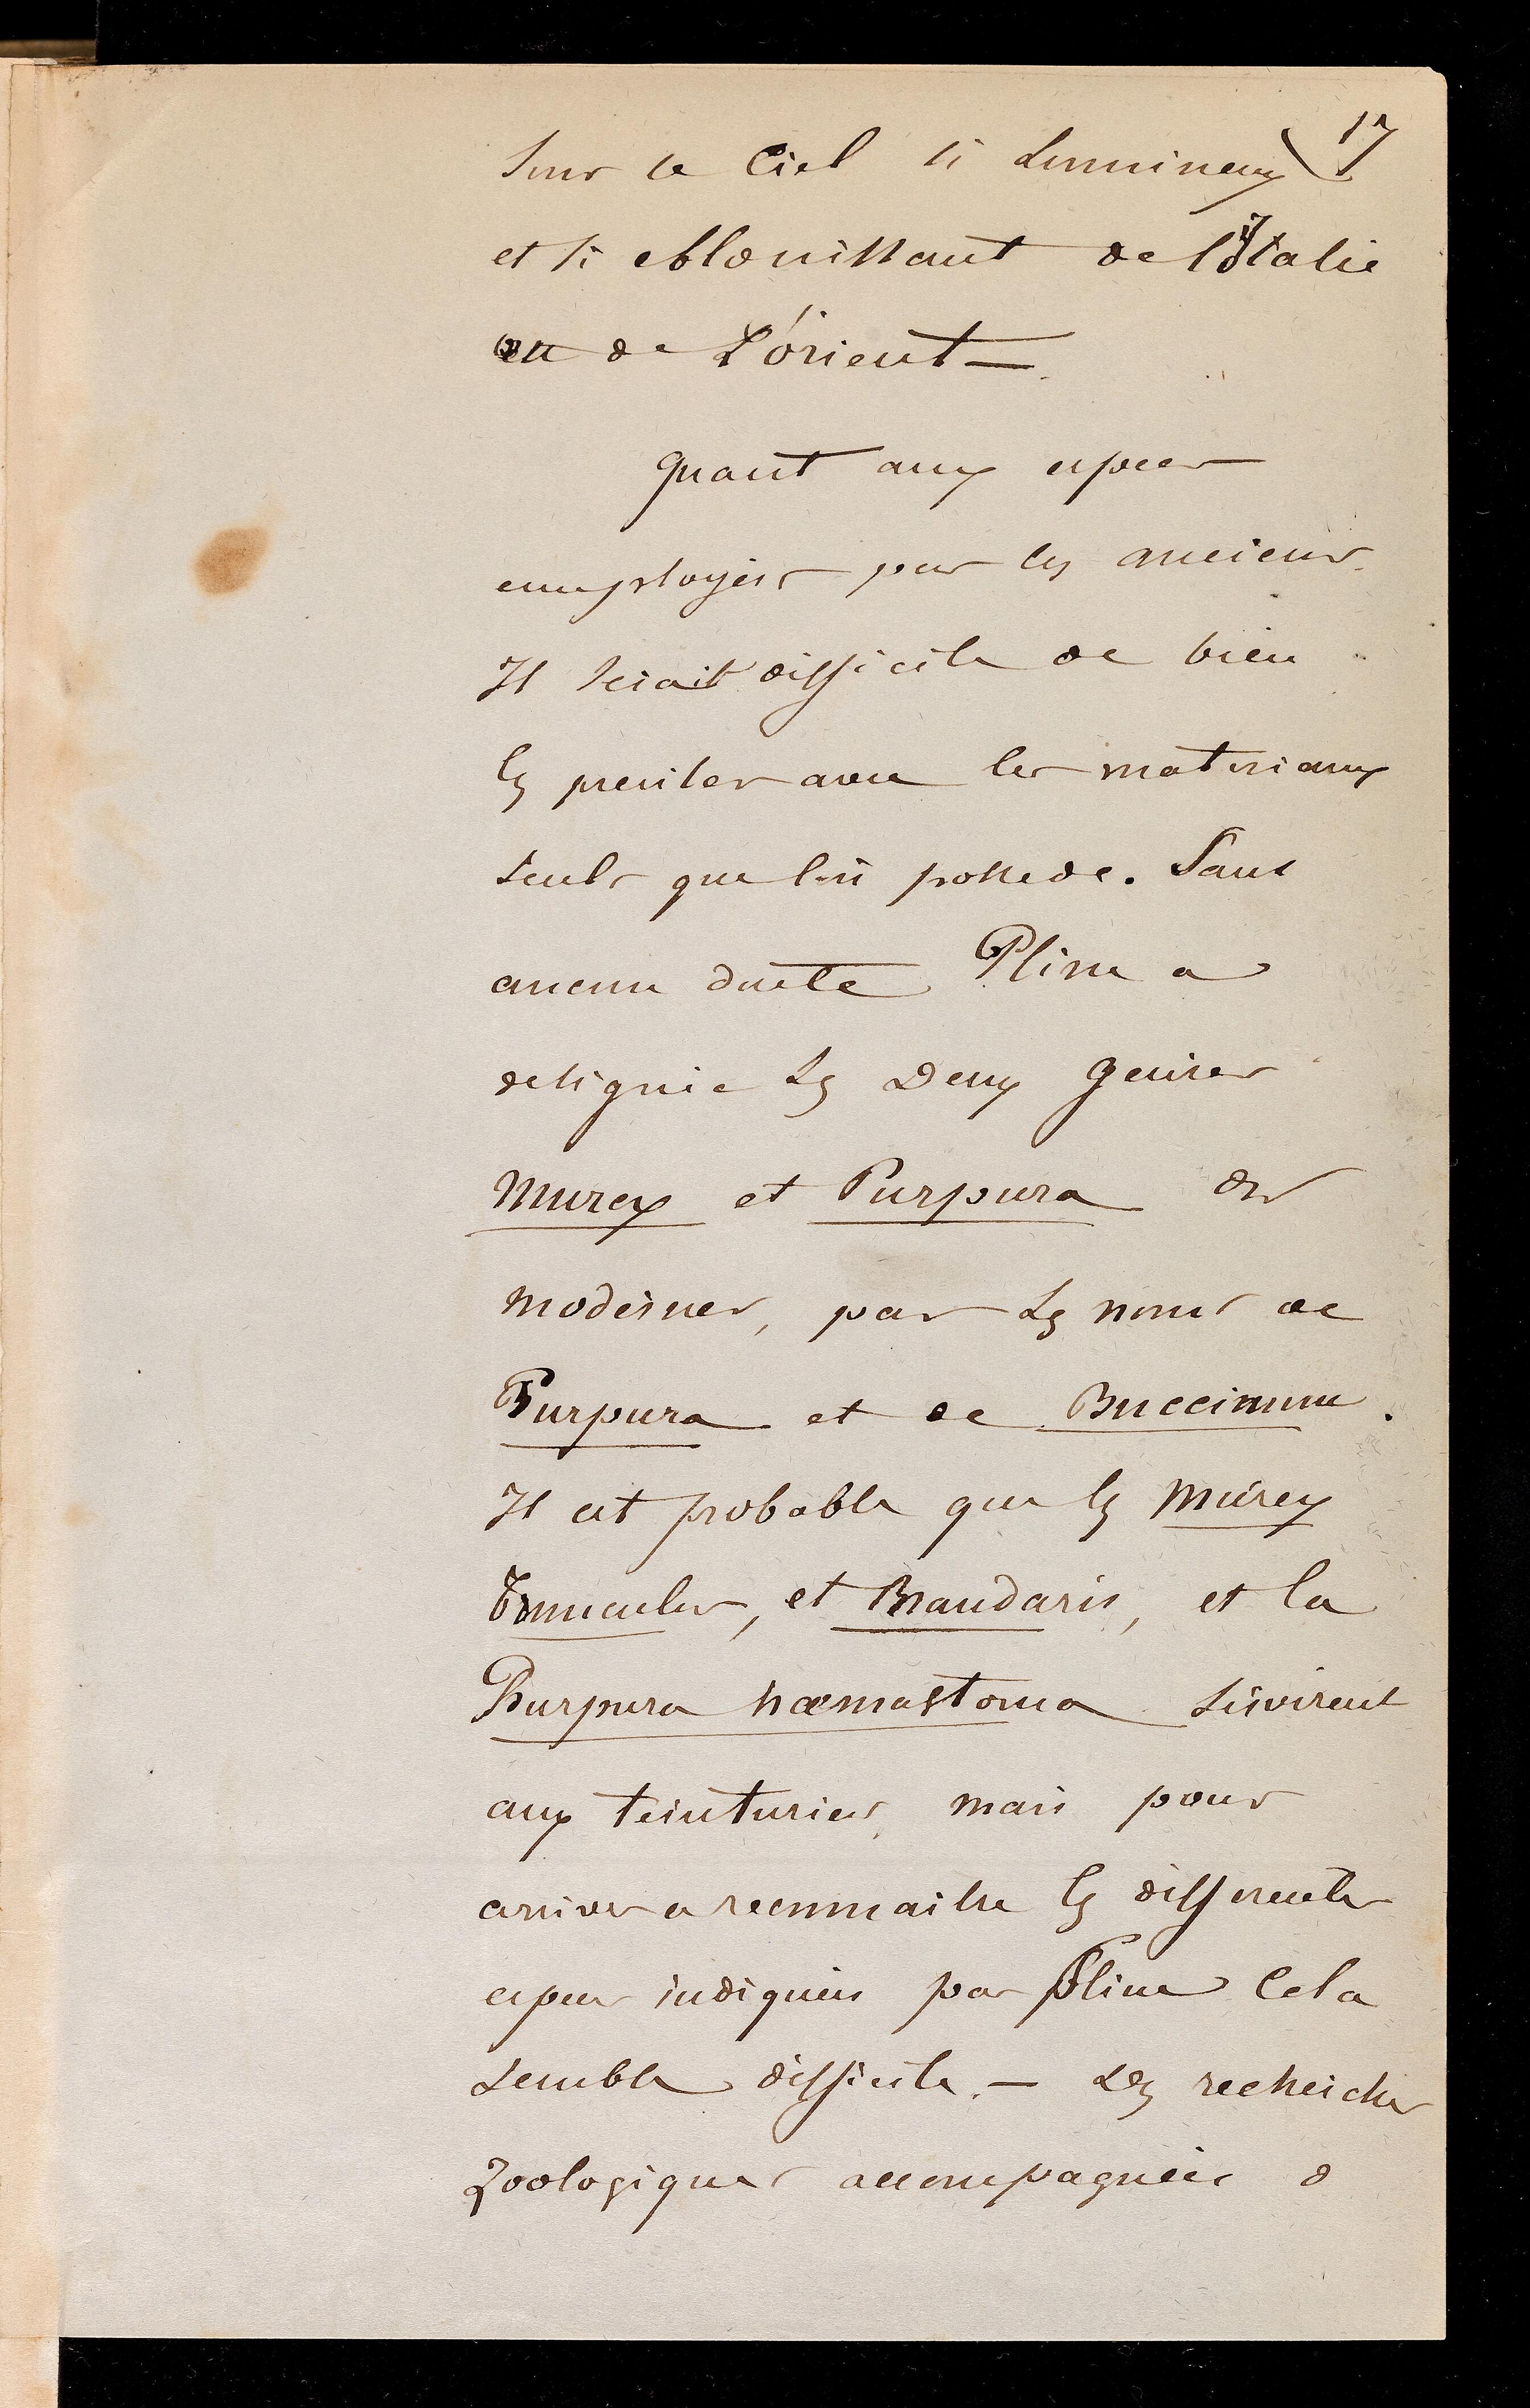 17
sous le Ciel si Lumineux
et si eblouissant de l'Italie
ou de L'órient —
Quant aux especes
employées par les anciens
Il serait difficile de bien
les preciser avec les materiaux
seuls que l'on possede. Sans
aucun doute Pline a
designé Les Deux Genres
Murex et Purpura des
modernes, par Les noms de
Purpura et de Buccinum.
Il est probable que les Murex
Trunculus, et Brandaris, et la
Purpura hæmastoma servirent
aux teinturiers, mais pour
arriver a reconnaitre les differentes
especes indiquées par Pline Cela
semble difficile. — Les recherches
Zoologiques accompagnées d